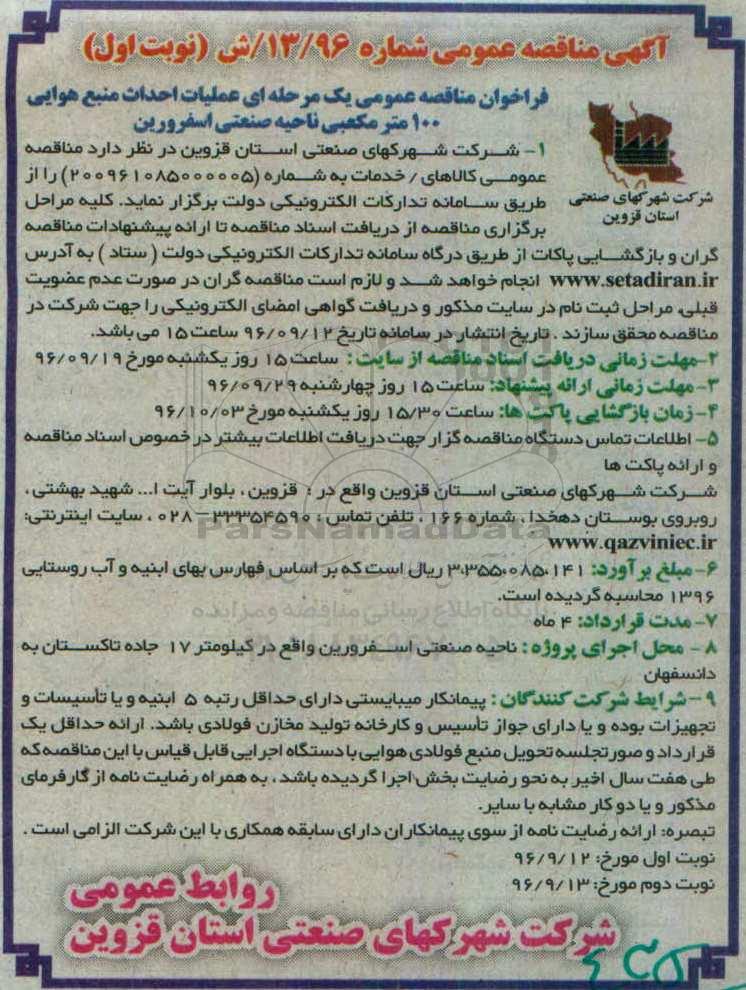 آگهی مناقصه عمومی شماره ۱۳/۹۶/ش (نوبت اول)
فراخوان مناقصه عمومی یک مرحله ای عملیات احداث منبع هوایی
۱۰۰ متر مکعبی ناحیه صنعتی اسفرورین
شرکت شهرکهای صنعتی
استان قزوین
۱- شرکت شهرکهای صنعتی استان قزوین در نظر دارد مناقصه
عمومی کالاهای / خدمات به شماره (۲۰۰۹۶۱۰۸۵۰۰۰۰۰۵) را از
طریق سامانه تدارکات الکترونیکی دولت برگزار نماید. کلیه مراحل
برگزاری مناقصه از دریافت اسناد مناقصه تا ارائه پیشنهادات مناقصه
گران و بازگشایی پاکات از طریق درگاه سامانه تدارکات الکترونیکی دولت ( ستاد ) به آدرس
www.setadiran.ir انجام خواهد شد و لازم است مناقصه گران در صورت عدم عضویت
قبلی، مراحل ثبت نام در سایت مذکور و دریافت گواهی امضای الکترونیکی را جهت شرکت در
مناقصه محقق سازند . تاریخ انتشار در سامانه تاریخ ۹۶/۰۹/۱۲ ساعت ۱۵ می باشد.
۲-مهلت زمانی دریافت اسناد مناقصه از سایت : ساعت ۱۵ روز یکشنبه مورخ ۹۶/۰۹/۱۹
۳-مهلت زمانی ارائه پیشنهاد: ساعت ۱۵ روز چهارشنبه ۹۶/۰۹/۲۹
۴-زمان بازگشایی پاکت ها: ساعت ۱۵/۳۰ روز یکشنبه مورخ ۹۶/۱۰/۰۳
۵- اطلاعات تماس دستگاه مناقصه گزار جهت دریافت اطلاعات بیشتر در خصوص اسناد مناقصه
و ارائه پاکت ها
شرکت شهرکهای صنعتی استان قزوین واقع در : قزوین ، بلوار آیت ا... شهید بهشتی ،
روبروی بوستان دهخدا ، شماره ۱۶۶ ، تلفن تماس : ۳۳۳۵۴۵۹۰–۰۲۸ ، سایت اینترنتی:
www.qazviniec.ir
ParsNamadData
۶-مبلغ برآورد: ۳،۳۵۵،۰۸۵،۱۴۱ ریال است که بر اساس فهارس بهای ابنیه و آب روستایی
۱۳۹۶ محاسبه گردیده است.
پایگاه اطلاع رسانی مناقصه و مزایده
۷-مدت قرارداد: ۴ ماه
۸ - محل اجرای پروژه : ناحیه صنعتی اسفرورین واقع در کیلومتر ۱۷ جاده تاکستان به
دانسفهان
۹-شرایط شرکت کنندگان : پیمانکار میبایستی دارای حداقل رتبه ۵ ابنیه و یا تأسیسات و
تجهیزات بوده و یا دارای جواز تأسیس و کارخانه تولید مخازن فولادی باشد. ارائه حداقل یک
قرارداد و صورتجلسه تحویل منبع فولادی هوایی با دستگاه اجرایی قابل قیاس با این مناقصه که
طی هفت سال اخیر به نحو رضایت بخش اجرا گردیده باشد ، به همراه رضایت نامه از کارفرمای
مذکور و یا دو کار مشابه با سایر.
تبصره: ارائه رضایت نامه از سوی پیمانکاران دارای سابقه همکاری با این شرکت الزامی است .
نوبت اول مورخ: ۹۶/۹/۱۲
نوبت دوم مورخ: ۹۶/۹/۱۳
روابط عمومی
شرکت شهرکهای صنعتی استان قزوین